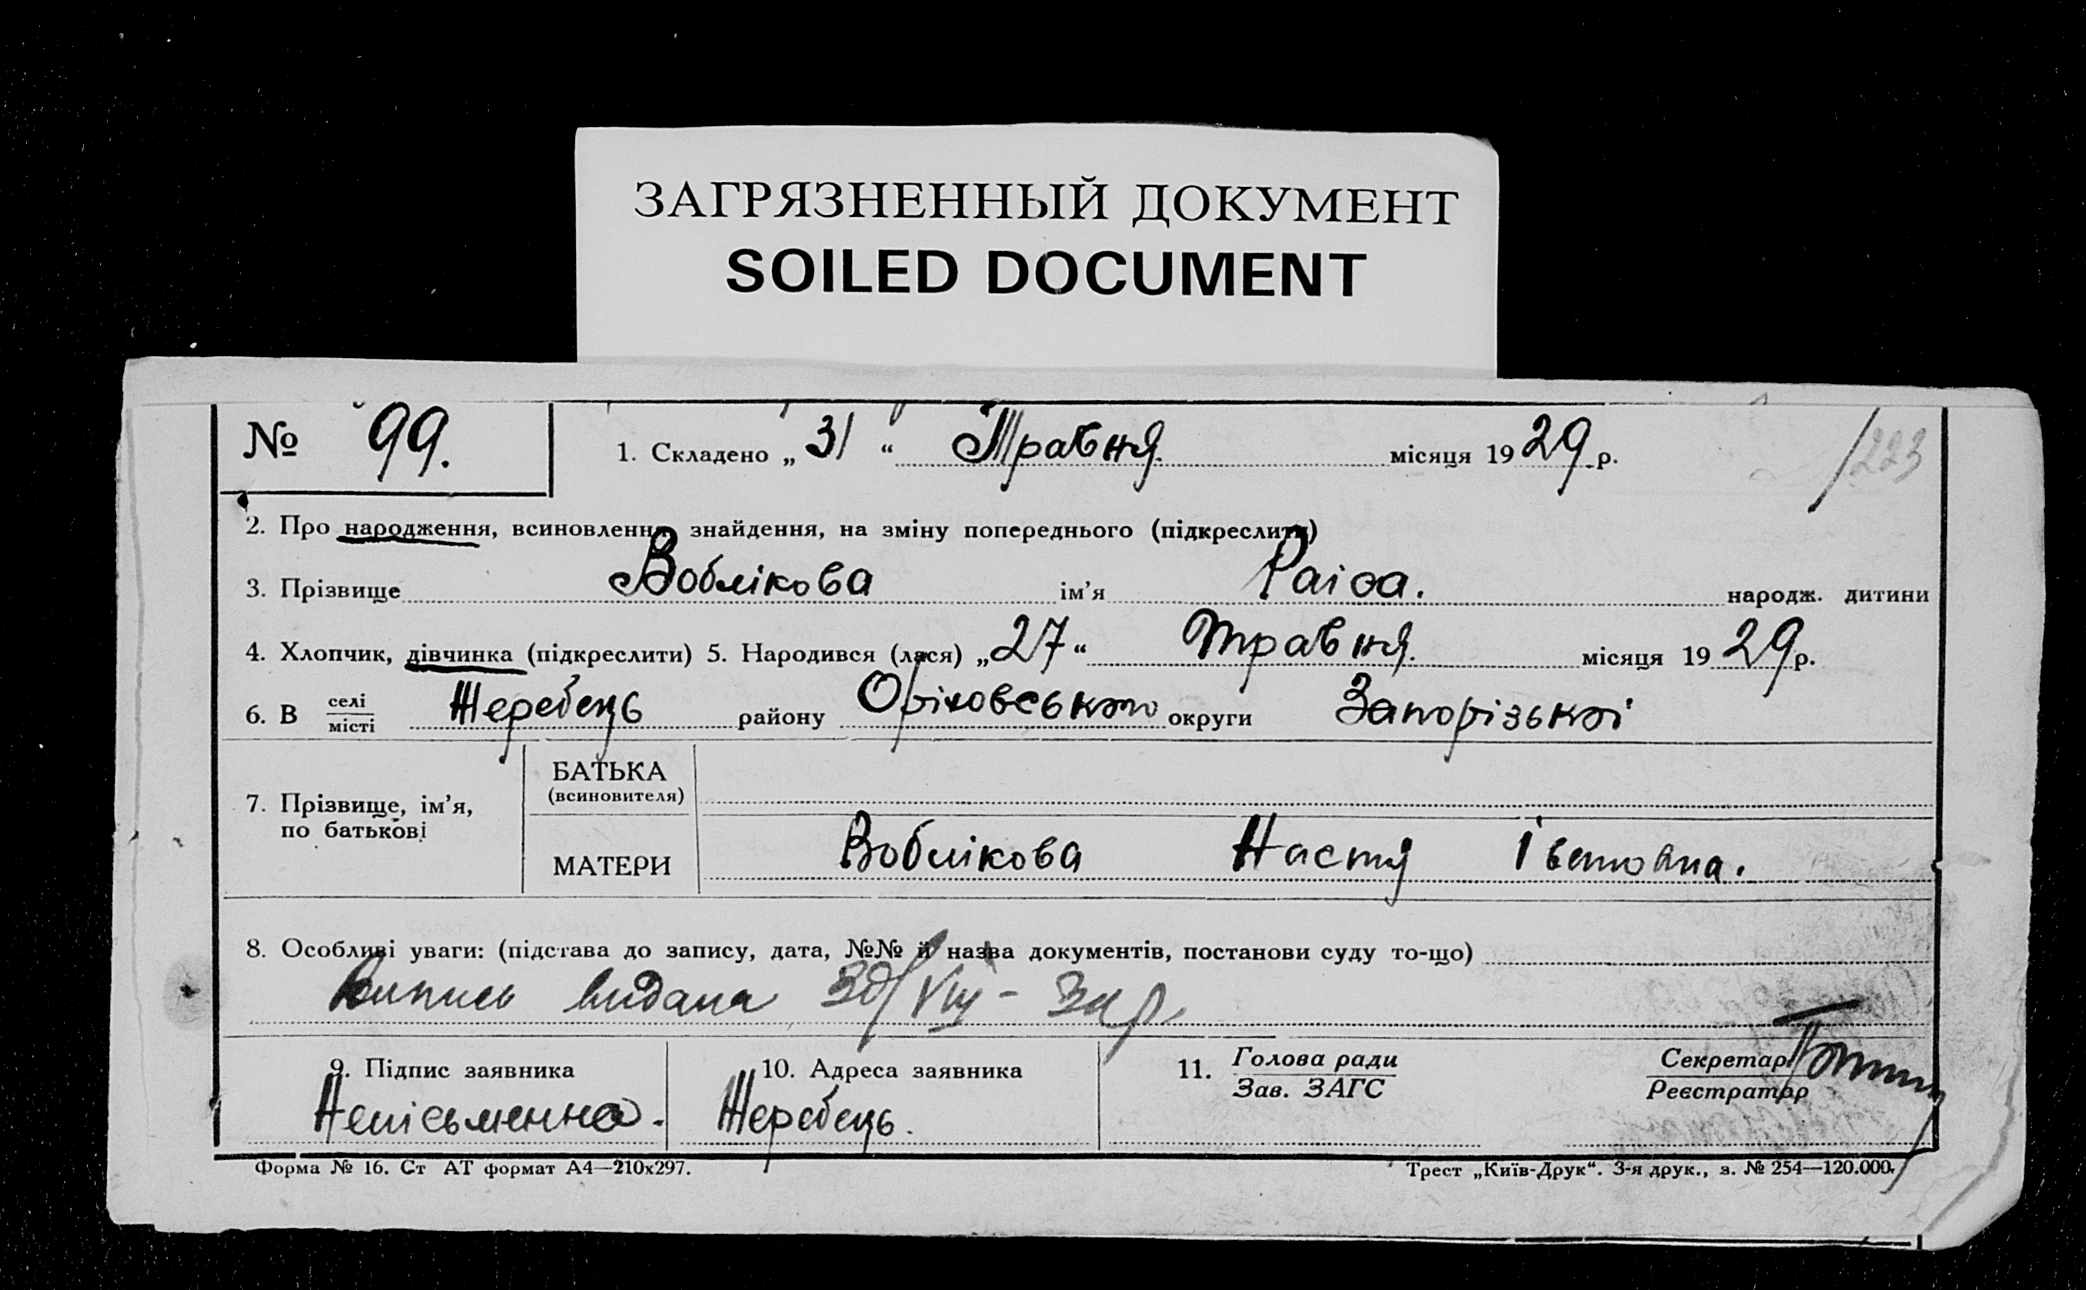 ЗАГРЯЗНЕННЫЙ ДОКУМЕНТ
SOILED DOCUMENT
№ 99. 1. Складено „31“ Травня місяця 1929 р. /223
2. Про народження, всиновлення, знайдення, на зміну попереднього (підкреслити)
3. Прізвище Воблікова ім'я Раіса. народж. дитини
4. Хлопчик, дівчинка (підкреслити) 5. Народився (лася) „27“ травня місяця 1929 р.
6. В селі/місті Жеребець району Оріховського округи Запорізькоі
7. Прізвище, ім'я, по батькові
БАТЬКА
(всиновителя)
МАТЕРИ Воблікова Настя Івановна.
8. Особливі уваги: (підстава до запису, дата, №№ й назва документів, постанови суду то-що)
Випись видана 30/VIII-
9. Підпис заявника
Непісьменна.
10. Адреса заявника
Жеребець.
11. Голова ради
Зав. ЗАГС
Секретар
Реєстратор
Форма № 16. Ст АТ формат А4—210х297.
Трест „Київ-Друк“. 3-я друк., з. № 254—120.000.